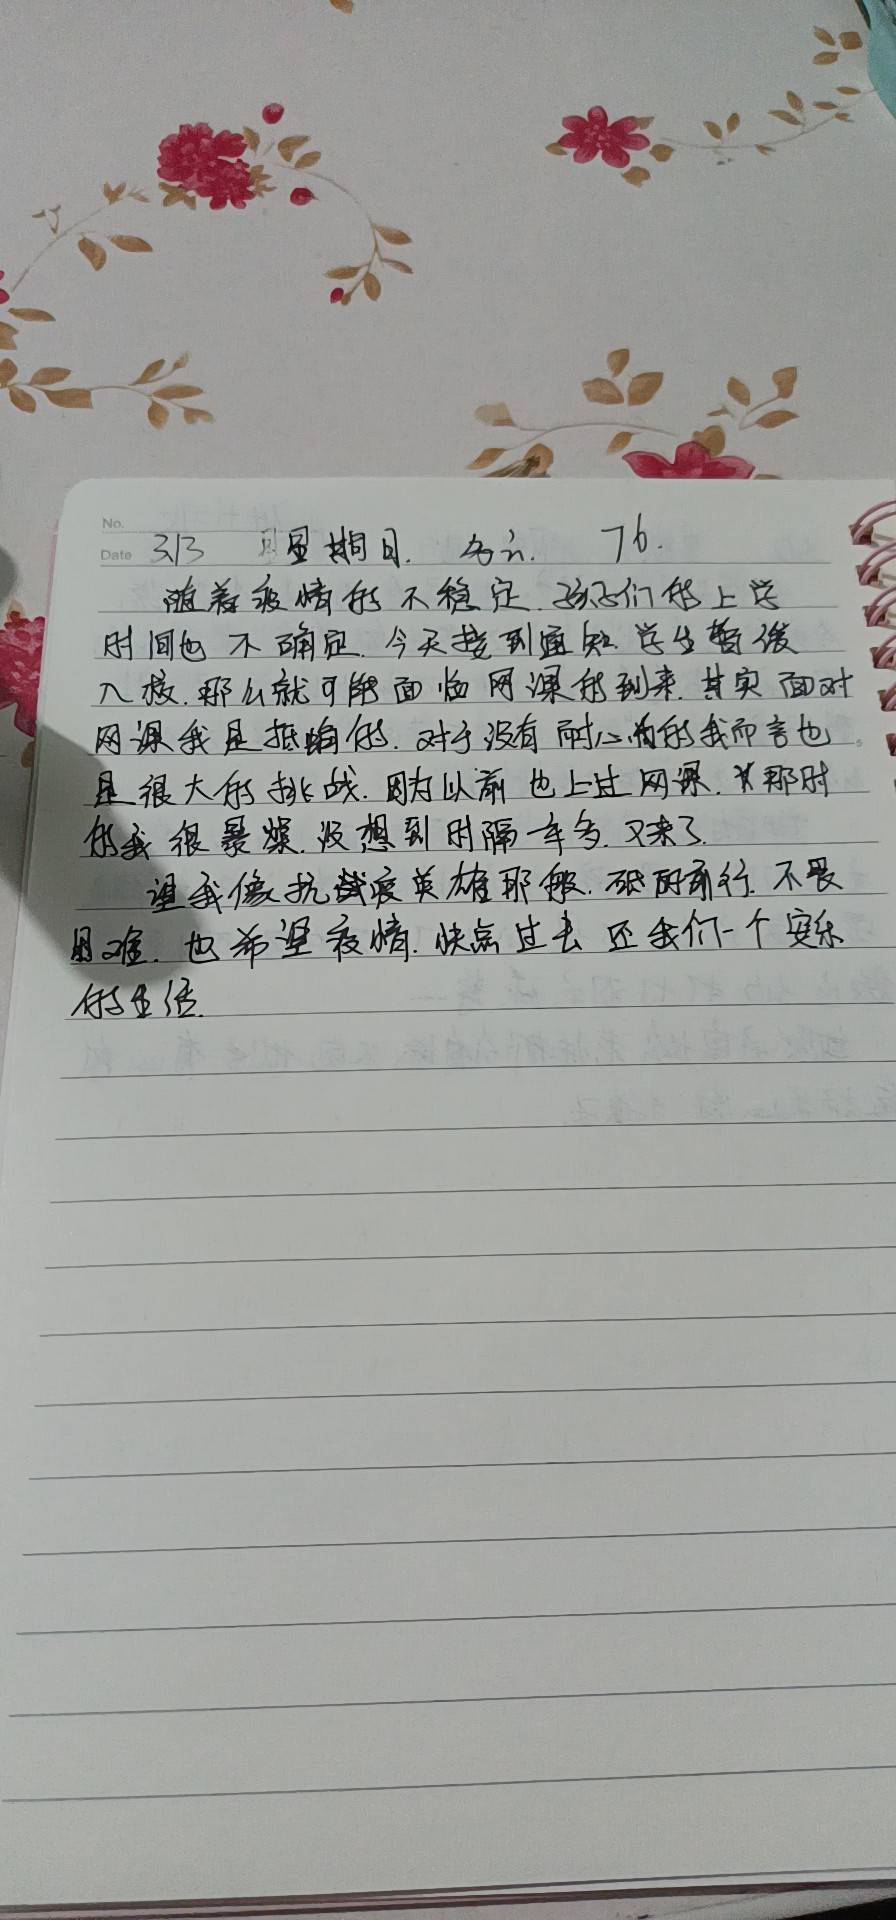 No.
Date 3.13 星期日. 多云. 76.
随着疫情的不稳定.孩子们的上学
时间也不确定.今天接到通知学生暂缓
入校.那么就可能面临网课的到来.其实面对
网课我是抵触的.对于没有耐心的我而言也
是很大的挑战.因为以前也上过网课.那时
的我很暴燥.没想到时隔年多.又来了.
望我像抗疫英雄那般.砥砺前行.不畏
困难.也希望疫情.快点过去还我们一个安乐
的生活.